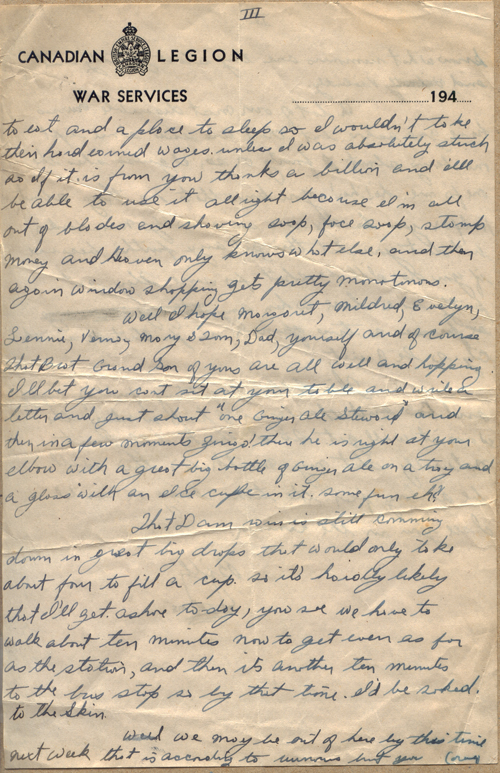 III
CANADIAN LEGION
WAR SERVICES
194
to eat and a place to sleep so I wouldn't take
their hard earned wages. unless I was absolutely stuck
so If it is from you thanks a billion and ill
be able to use it allright because I'm all
out of blades and shaving soap, face soap, stamp
money and Heaven only knows what else, and then
again window shopping gets pretty monotinous.
Well I hope Margaret, Mildred, Evelyn,
Lennie, Verna, Mary & Son, Dad, yourself and of course
that Brat Grand Son of yours are all well and hopping
I'll bet you cant sit at your table and write a
letter and just shout "one Ginger Ale Steward" and
then in a few moments there he is right at your
elbow with a great big bottle of Ginger ale on a tray and
a glass with an Ice cube in it. some fun eh!
That Darn rain is still comming
down in great big drops that would only take
about four to fill a cup. so it's hardly likely
that I'll get ashore to-day, you see we have to
walk about ten minutes now to get even as far
as the station, and then its another ten minutes
to the bus stop so by that time. I'd be soked.
to the Skin.
Well we may be out of here by this time
next week that is according to rumours but you